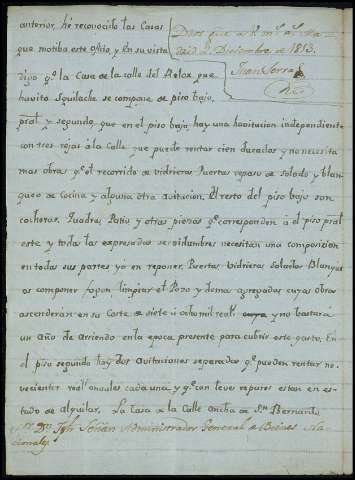 anterior, hé reconocido las Casas
que motiba este oficio, y en su vista
digo qᵉ la Casa de la calle del Relox, que
havito Squilache se compone de piso bajo,
pral y segundo, que en el piso bajo, hay una havitacion independiente
con tres rejas á la Calle que puede rentar cien ducados y no necesita
mas obras qᵉ el recorrido de vidrieras Puertas reparo de solado y blan
queo de Cocina y alguna otra avitacion. El resto del piso bajo son
cocheras, Quadras Patio y otras piezas qᵉ corresponden á el piso pral
este y todas las expresadas servidumbres necesitan una composicion
en todas sus partes ya en reponer Puertas Vidrieras solados Blanqᵒˢ
componer fogon, limpiar el Pozo y demas agregados cuyas obras
ascenderan en su Coste de siete á ocho mil reales y no bastara
un año de arriendo en la epoca presente para cubrir este gasto. En
el piso segundo hay dos avitaciones separadas qᵉ pueden rentar no-
vecientos reales anuales cada una y qᵉ con leves reparos estan en es-
tado de alquilar. La Casa de la Calle Ancha de Sⁿ Bernardo
Sᵒʳ Dⁿ Administrador General de Bienes Na-
cionales
Dios gue á V. mˢ aˢ Ma-
drid 2 Diciembre de 1813.
Juan